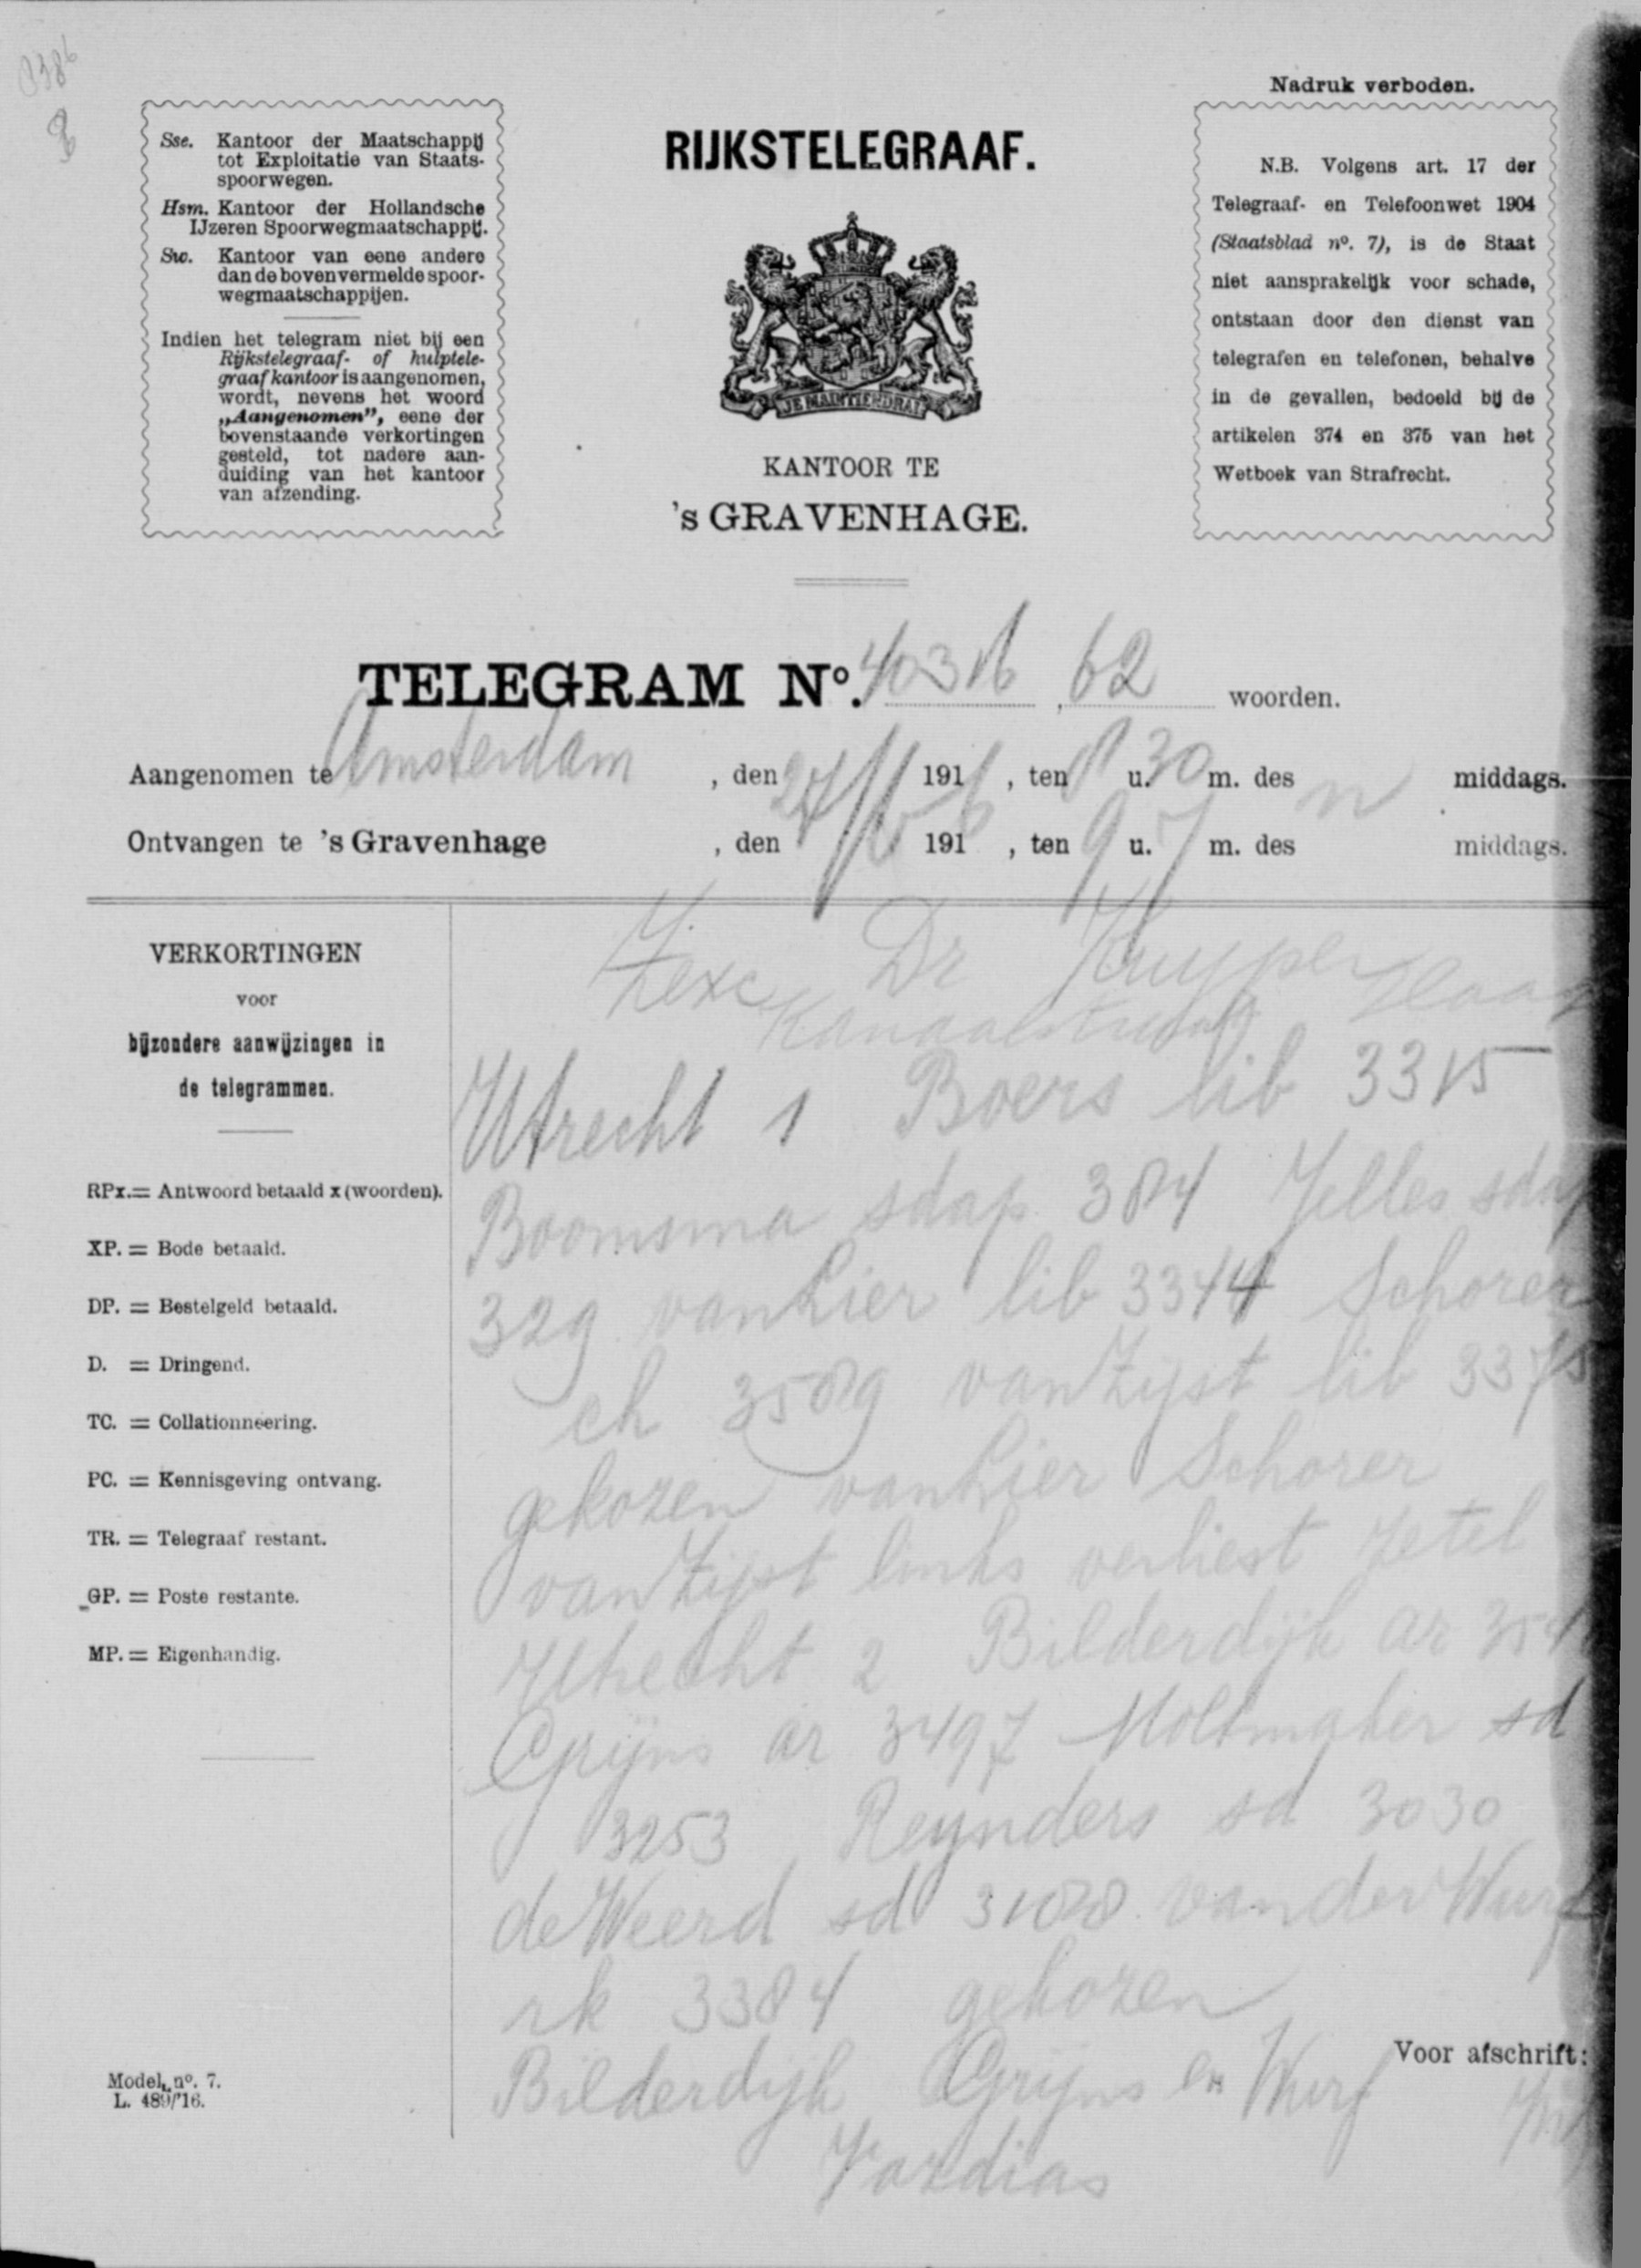 Nadruk verboden.
Sse. Kantoor der Maatschappij
tot Exploitatie van Staats-
spoorwegen.
Hsm. Kantoor der Hollandsche
IJzeren Spoorwegmaatschappij.
Sw. Kantoor van eene andere
dan de bovenvermelde spoor-
wegmaatschappijen.
Indien het telegram niet bij een
Rijkstelegraaf- of hulptele-
graafkantoor is aangenomen,
wordt, nevens het woord
„Aangenomen", eene der
bovenstaande verkortingen
gesteld, tot nadere aan-
duiding van het kantoor
van afzending.
RIJKSTELEGRAAF.
JE MAINTIENDRAI
KANTOOR TE
's GRAVENHAGE.
N.B. Volgens art. 17 der
Telegraaf- en Telefoonwet 1904
(Staatsblad no. 7), is de Staat
niet aansprakelijk voor schade,
ontstaan door den dienst van
telegrafen en telefonen, behalve
in de gevallen, bedoeld bij de
artikelen 374 en 375 van het
Wetboek van Strafrecht.
TELEGRAM No. 62 woorden.
Aangenomen te Amsterdam, den 191 , ten u. 30 m. des n middags.
Ontvangen te 's Gravenhage , den 191 , ten 9 u. 7 m. des middags.
VERKORTINGEN
voor
bijzondere aanwijzingen in
de telegrammen.
RPx. = Antwoord betaald x (woorden).
XP. = Bode betaald.
DP. = Bestelgeld betaald.
D. = Dringend.
TC. = Collationneering.
PC. = Kennisgeving ontvang.
TR. = Telegraaf restant.
GP. = Poste restante.
MP. = Eigenhandig.
Model no. 7.
L. 489/'16.
Zexc Dr Kuyper Haag
Kanaalstraat
Utrecht 1 Boers lib 3315
Boomsma sdap Jelles sdap
329 vanLier lib 3344 Schorer
ch vanZijst lib
gekozen vanLier Schorer
vanZijst links verliest zetel
Utrecht 2 Bilderdijk ar
Grijns ar 3497 Moltmaker sd
3253 Reynders sd 3030
deWeerd sd vanderWurf
rk 3384 gekozen
Bilderdijk Grijns en Wurf
Vazdias
Voor afschrift: